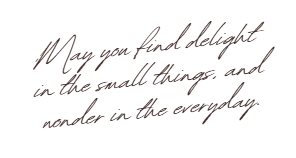 May you find delight
in the small things, and
wonder in the everyday.